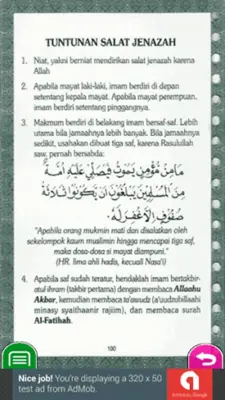 TUNTUNAN SALAT JENAZAH
1. Niat, yakni berniat mendirikan salat jenazah karena
Allah
2. Apabila mayat laki-laki, imam berdiri di depan
setentang kepala mayat. Apabila mayat perempuan,
imam berdiri setentang pinggangnya.
3. Makmum berdiri di belakang imam bersaf-saf. Lebih
utama bila jamaahnya lebih banyak. Bila jamaahnya
sedikit, usahakan dibuat tiga saf, karena Rasulullah
saw, pernah bersabda:
مَا مِنْ مُؤْمِنٍ يَمُوْتُ فَيُصَلِّى عَلَيْهِ أُمَّةٌ
مِنَ الْمُسْلِمِيْنَ يَبْلُغُوْنَ أَنْ يَكُوْنُوْا ثَلَاثَةَ
صُفُوْفٍ إِلَّا غُفِرَ لَهُ
"Apabila orang mukmin mati dan disalatkan oleh
sekelompok kaum muslimin hingga mencapai tiga saf,
maka dosa-dosa si mayat diampuni."
(HR. lima ahli hadis, kecuali Nasa'i)
4. Apabila saf sudah teratur, hendaklah imam bertakbir-
atul ihram (takbir pertama) dengan membaca Allaahu
Akbar, kemudian membaca ta'awudz (a'uudzubillaahi
minasy syaithaanir rajiim), dan membaca surah
Al-Fatihah.
100
Nice job! You're displaying a 320 x 50
test ad from AdMob.
AdMob by Google